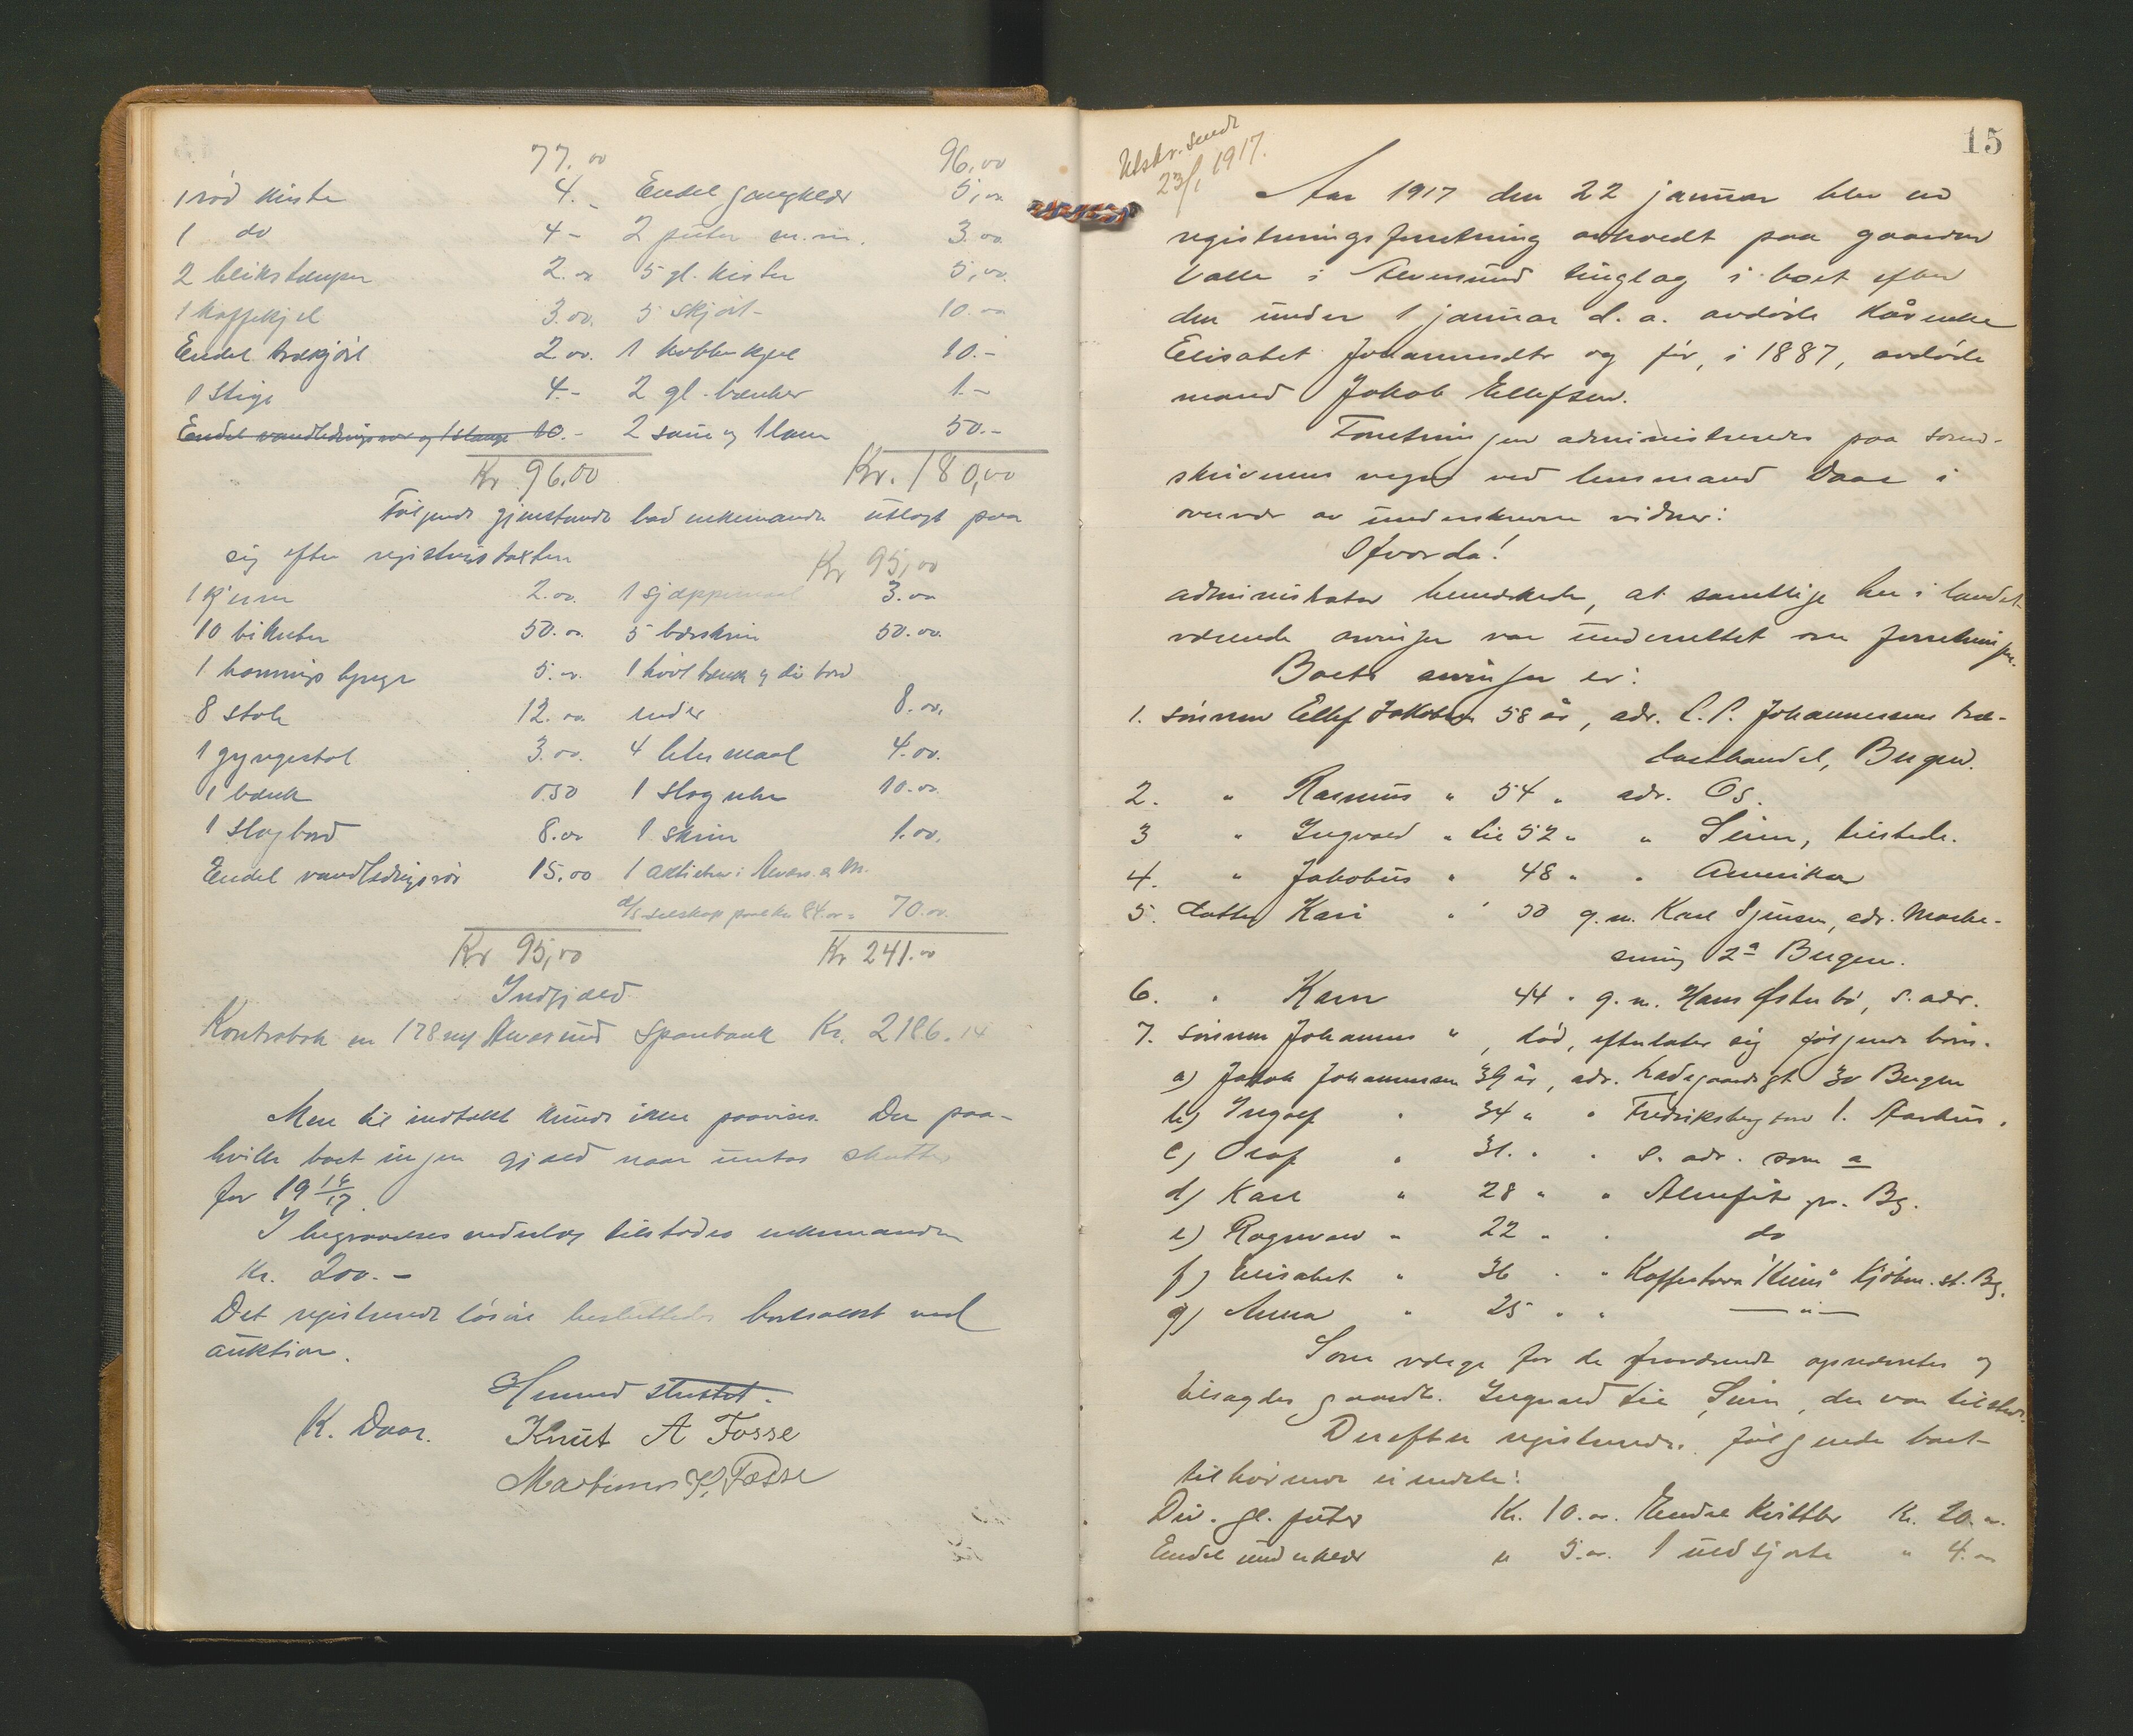 77.00 96,00
1 rød kiste 4.- Endel gangklær 5,00
1 do 4- 2 puter m.m. 3.00
2 blikstamper 2.00 5 gl. kister 5,00.
1 kaffekjel 3.00. 5 skjørt- 10.00
Endel trekjørl 2.00. 1 kobberkjel 10.-
1 Stige 4.- 2 gl. bænker 1.-
Endel vandledningsrør og 1 slange 10.- 2 saue og 1 lam 50.-
Kr 96.00 Kr. 180,00
Følgende gjenstande bad enkemanden utlagt paa
sig efter registringstaxten Kr 95,00
1 kjerne 2.00. 1 sjæppemaal 3.00
10 bikuber 50.00. 5 bærskrin 50.00.
1 honningslynge 5.00. 1 høvlbænk og div bord
8 stole 12.00. 8.00.
1 gyngestol 3.00. 4 liter maal 4.00.
1 bænk 0.50 1 Slaguhr 10.00
1 Slagbord 8.00 1 skrin 1.00.
Endel vandledningsrør 15.00 1 aktie i Alvers. & M.
d/s selskap paal. kr 84.00 = 70.00.
Kr 95,00 Kr 241.00
Indgjæld
Kontrabok nr 178 Alversund Sparebank Kr. 2186.14
Mere til indtækt kunde ikke paavises. Der paa-
hviler boet ingen gjæld naar untas skatter
for 19 16/17.
I begravelsesvederlag tilstodes enkemanden
Kr. 200.-
Det registrerede løsøre besluttedes bortsolgt ved
auktion.
Hermed sluttet.
K. Daae. Knut A Fosse
Martinus K. Fosse
15
Utskr. sendt
23/1 1917.
Aar 1917 den 22 januar blev en
registreringsforretning avholdt paa gaarden
Valle i Alversund tinglag i boet efter
den under 1 januar d. a. avdøde kårenke
Elisabet Johannesdtr og før, i 1887, avdøde
mand Jakob Ellefsen.
Forretningen administreredes paa soren-
skriverens vegne ved lensmand Daae i
overvær av underskrevne vidner:
Hvorda!
administrator bemerkede, at samtlige her i landet
værende arvinger var underrettet om forretningen.
Boets arvinger er:
1. sønnen Ellef Jakobsen 58 år, adr. C. P. Johannessens træ-
lasthandel, Bergen.
2. " Rasmus " 54 " adr. Os.
3 " Ingvald " Lie 52 " " Seim, tilstede.
4. " Jakobus " 48 " " Amerika
5. datter Kari " 50 g.m. Karl Synsen, adr. Marke-
6. " Karn 44 " g.m. Hans Østerbø, s. adr.
7. sønnen Johannes " , død, efterlater sig følgende børn.
a) Jakob Johannessen 39 år, adr. Ladegaardsgt 30 Bergen
b) Ingolf " 34 " " Fredriksberg 1.
c) Olaf " 31. " " s. adr. som a
d) Karl " 28 " " pr. Bg.
e) Ragnvald " 22 " " do
f) Elisabet " 36 " " Kaffestova "Heim" Kjøbm. st. Bg.
g) Anna " 25 " " — " —
Som værge for de fraværende opnævntes og
tilsagdes gaardbr. Ingvald Lie, Seim, der var tilstede.
Derefter registreredes følgende boet
tilhørende eiendele:
Div. gl. puter Kr. 10.00. Endel kister Kr. 20.00.
Endel underklær " 5.00. 1 uldskjorte " 4.00